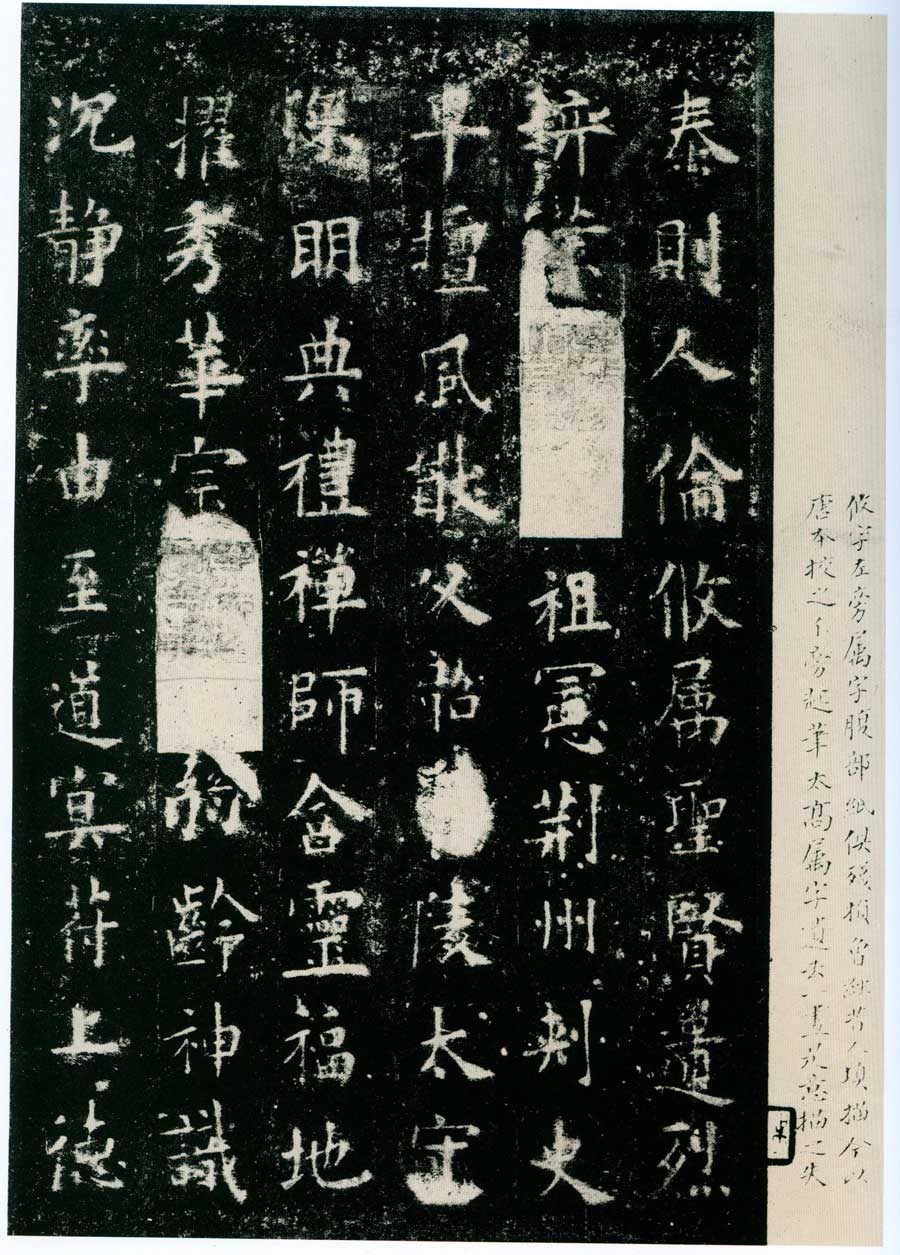 攸字左旁属字腹部紙俱殘損曾經昔人填描今以
唐本校之亻旁起筆太高属字遺去一畫是意描之失
泰則人倫攸属聖賢遺烈
弈葉祖憲荆州刺史
早擅風猷父陵太守
深明典禮禪師含靈福地
擢秀華宗齡神識
沉静率由至道冥符上德